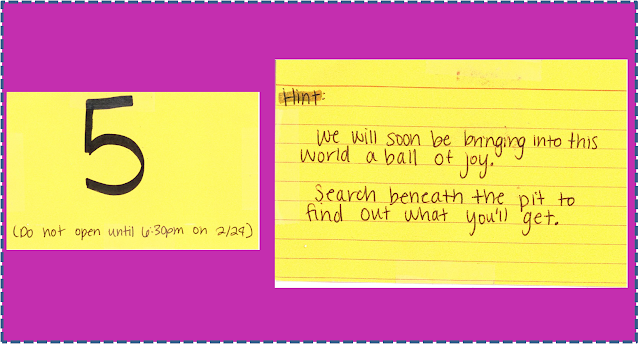 5
(Do not open until 6:30pm on 2/29)
Hint:
We will soon be bringing into this
world a ball of joy.
Search beneath the pit to
find out what you'll get.